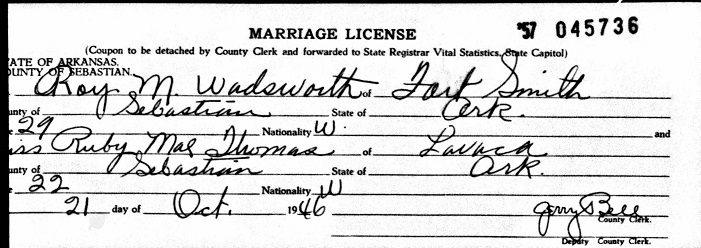 MARRIAGE LICENSE '57 045736
(Coupon to be detached by County Clerk and forwarded to State Registrar Vital Statistics, State Capitol)
ATE OF ARKANSAS.
OUNTY OF SEBASTIAN.
Roy M. Wadsworth of Fort Smith
unty of Sebastian State of Ark.
e 29 Nationality W. and
iss Ruby Mae Thomas of Lavaca
unty of Sebastian State of Ark.
e 22 Nationality W
21 day of Oct. 1946
Jerry Bell
County Clerk.
Deputy County Clerk.